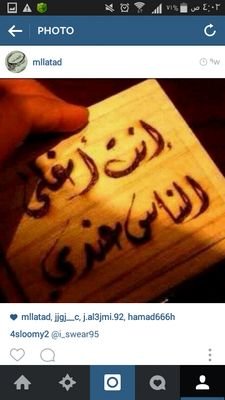 ٧١% ٤:٠٢ ص
PHOTO
mllatad
٩w
إنت أغلى
الناس عندي
mllatad, jjgj__c, j.al3jmi.92, hamad666h
4sloomy2 @i_swear95